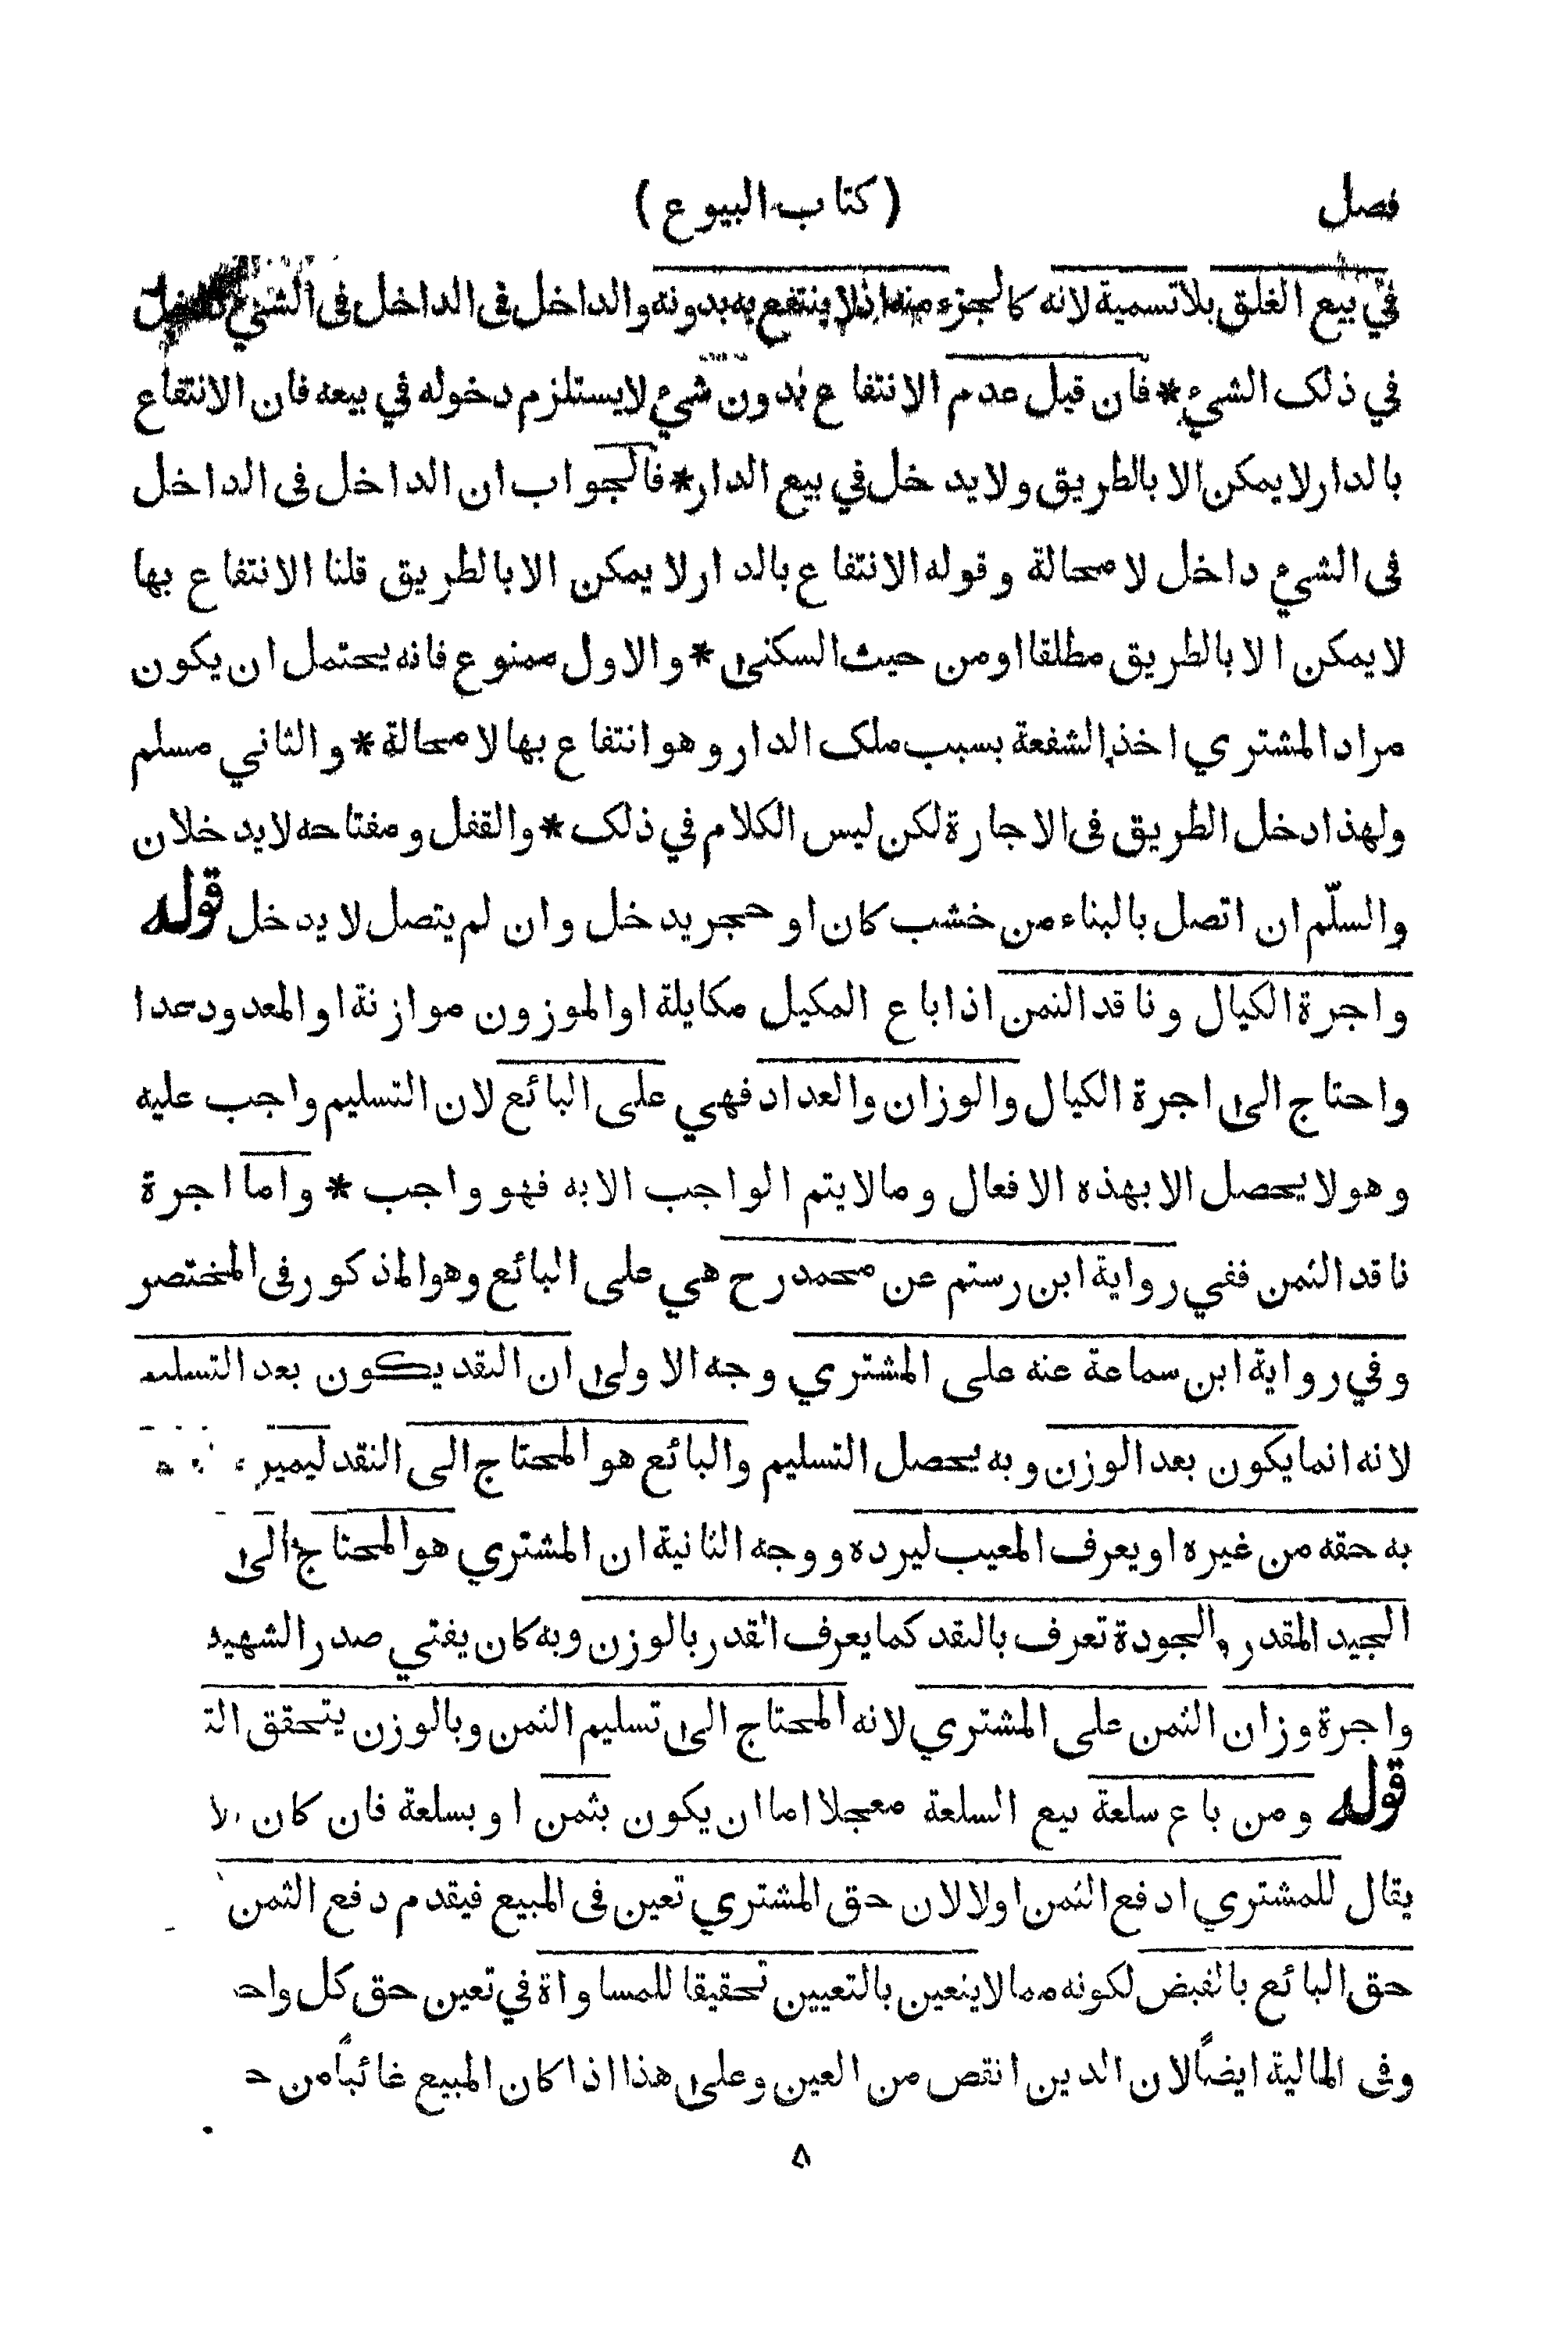 فصل (كتاب البيوع)
في بيع الغلق بلا تسمية لانه كالجزء منه اذ لا ينتفع به بدونه والداخل في الداخل في الشيء داخل
في ذلك الشيء * فان قيل عدم الانتفاع بدون شيء لا يستلزم دخوله في بيعه فان الانتفاع
بالدار لا يمكن الا بالطريق ولا يدخل في بيع الدار * فالجواب ان الداخل في الداخل
في الشيء داخل لا محالة وقوله الانتفاع بالدار لا يمكن الا بالطريق قلنا الانتفاع بها
لا يمكن الا بالطريق مطلقا او من حيث السكنى * والاول ممنوع فانه يحتمل ان يكون
مراد المشتري اخذ الشفعة بسبب ملك الدار وهو انتفاع بها لا محالة * والثاني مسلم
ولهذا دخل الطريق في الاجارة لكن ليس الكلام في ذلك * والقفل ومفتاحه لا يدخلان
والسلّم ان اتصل بالبناء من خشب كان او حجر يدخل وان لم يتصل لا يدخل قوله
واجرة الكيال وناقد الثمن اذا باع المكيل مكايلة او الموزون موازنة او المعدود عدا
واحتاج الى اجرة الكيال والوزان والعداد فهي على البائع لان التسليم واجب عليه
وهو لا يحصل الا بهذه الافعال وما لا يتم الواجب الا به فهو واجب * واما اجرة
ناقد الثمن ففي رواية ابن رستم عن محمد رح هي على البائع وهو المذكور في المختصر
وفي رواية ابن سماعة عنه على المشتري وجه الاولى ان النقد يكون بعد التسليم
لانه انما يكون بعد الوزن وبه يحصل التسليم والبائع هو المحتاج الى النقد ليميز
به حقه من غيره او يعرف المعيب ليرده ووجه الثانية ان المشتري هو المحتاج الى
الجيد المقدر والجودة تعرف بالنقد كما يعرف القدر بالوزن وبه كان يفتي صدر الشهيد
واجرة وزان الثمن على المشتري لانه المحتاج الى تسليم الثمن وبالوزن يتحقق
قوله ومن باع سلعة بيع السلعة معجلا اما ان يكون بثمن او بسلعة فان كان
يقال للمشتري ادفع الثمن اولا لان حق المشتري تعين في المبيع فيقدم دفع الثمن
حق البائع بالقبض لكونه مما لا يتعين بالتعيين تحقيقا للمساواة في تعين حق كل
وفي المالية ايضاً لان الدين انقص من العين وعلى هذا اذا كان المبيع غائباً من
٨